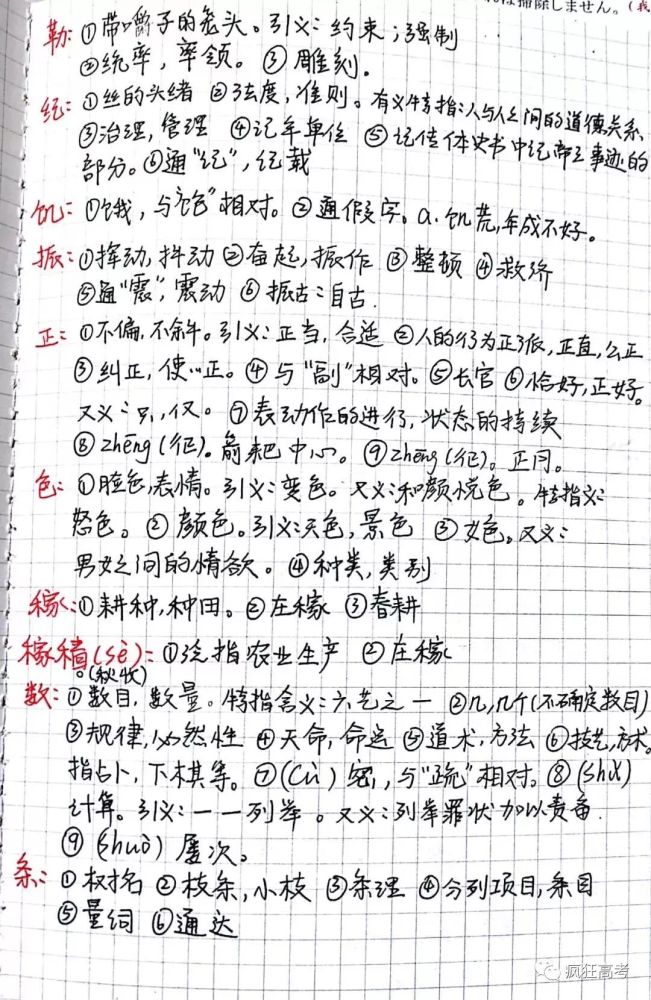 は掃除しません。(我
勒:①带嚼子的笼头。引义:约束;强制
②统率,率领。③雕刻。
纪:①丝的头绪 ②法度,准则。有义特指:人与人之间的道德关系
③治理,管理 ④记年单位 ⑤纪传体史书中纪帝王事迹的
部分。⑥通“记”,纪载
饥:①饿,与“饱”相对。②通假字。a.饥荒,年成不好。
振:①挥动,抖动 ②奋起,振作 ③整顿 ④救济
⑤通“震”,震动 ⑥振古:自古.
正:①不偏,不斜。引义:正当,合适 ②人的行为正派,正直,公正
③纠正,使…正。④与“副”相对。⑤长官 ⑥恰好,正好。
又义:只,仅。⑦表动作的进行,状态的持续
⑧zhēng(征)。箭靶中心。⑨zhēng(征)。正月。
色:①脸色,表情。引义:变色。又义:和颜悦色。特指义:
怒色。②颜色。引义:天色,景色 ③女色。又义:
男女之间的情欲。④种类,类别
稼:①耕种,种田。②庄稼 ③春耕
稼穑(sè):①泛指农业生产 ②庄稼
。(秋收)
数:①数目,数量。特指含义:六艺之一 ②几,几个(不确定数目)
③规律,必然性 ④天命,命运 ⑤道术,方法 ⑥技艺,方术。
指占卜,下棋等。⑦(cù)密,与“疏”相对。⑧(shǔ)
计算。引义:一一列举。又义:列举罪状加以责备
⑨(shuò)屡次。
条:①树名 ②枝条,小枝 ③条理 ④分列项目,条目
⑤量词 ⑥通达
疯狂高考